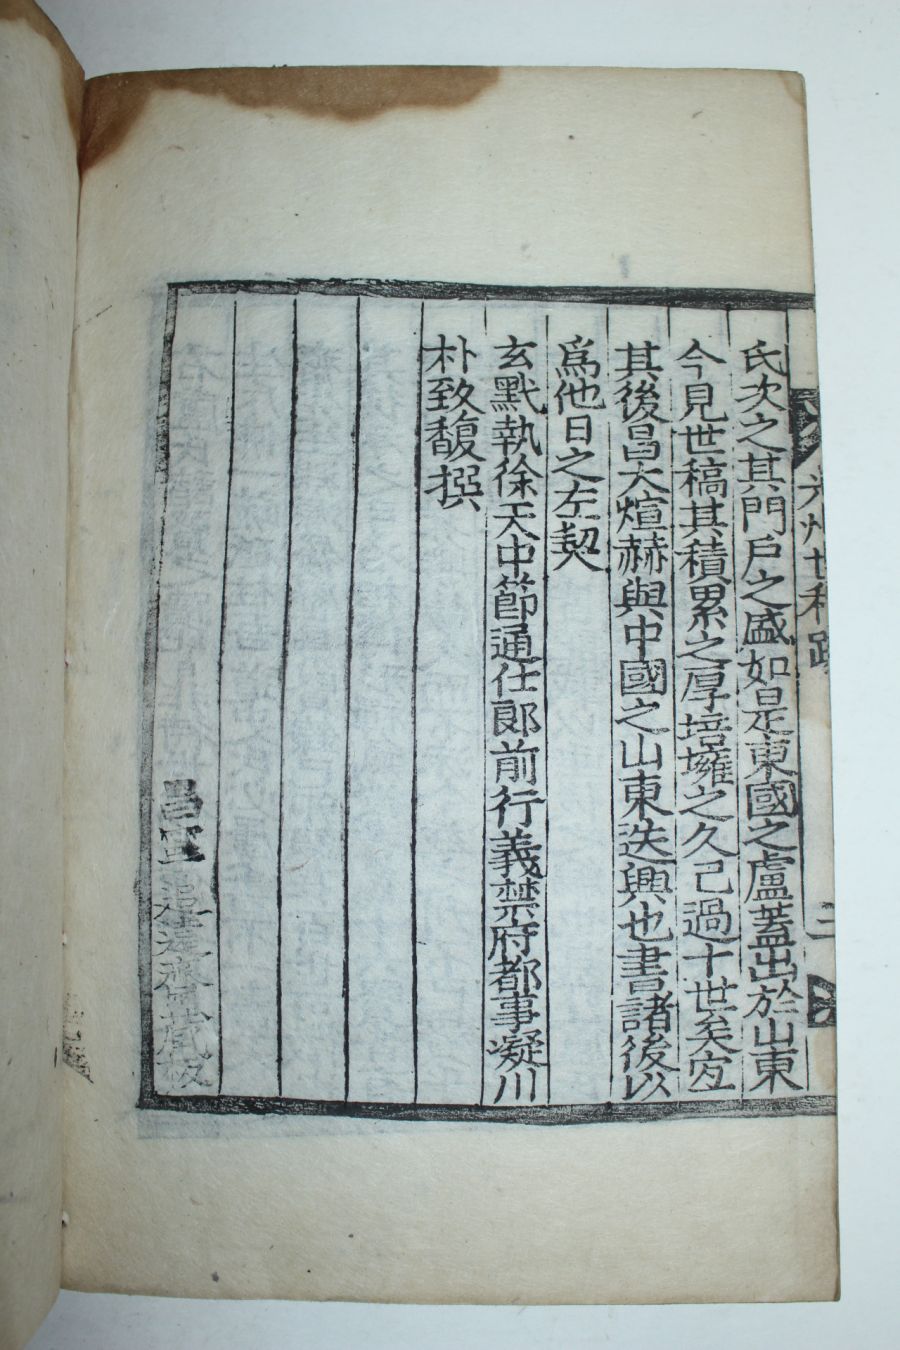 氏次之其門戶之盛如是東國之盧蓋出於山東
今見世稿其積累之厚培壅之久已過十世矣宜
其後昌大煊赫與中國之山東迭興也書諸後以
爲他日之左契
玄黓執徐天中節通仕郞前行義禁府都事凝川
朴致馥撰
昌宜追遠齋藏板
光州世稿跋
三